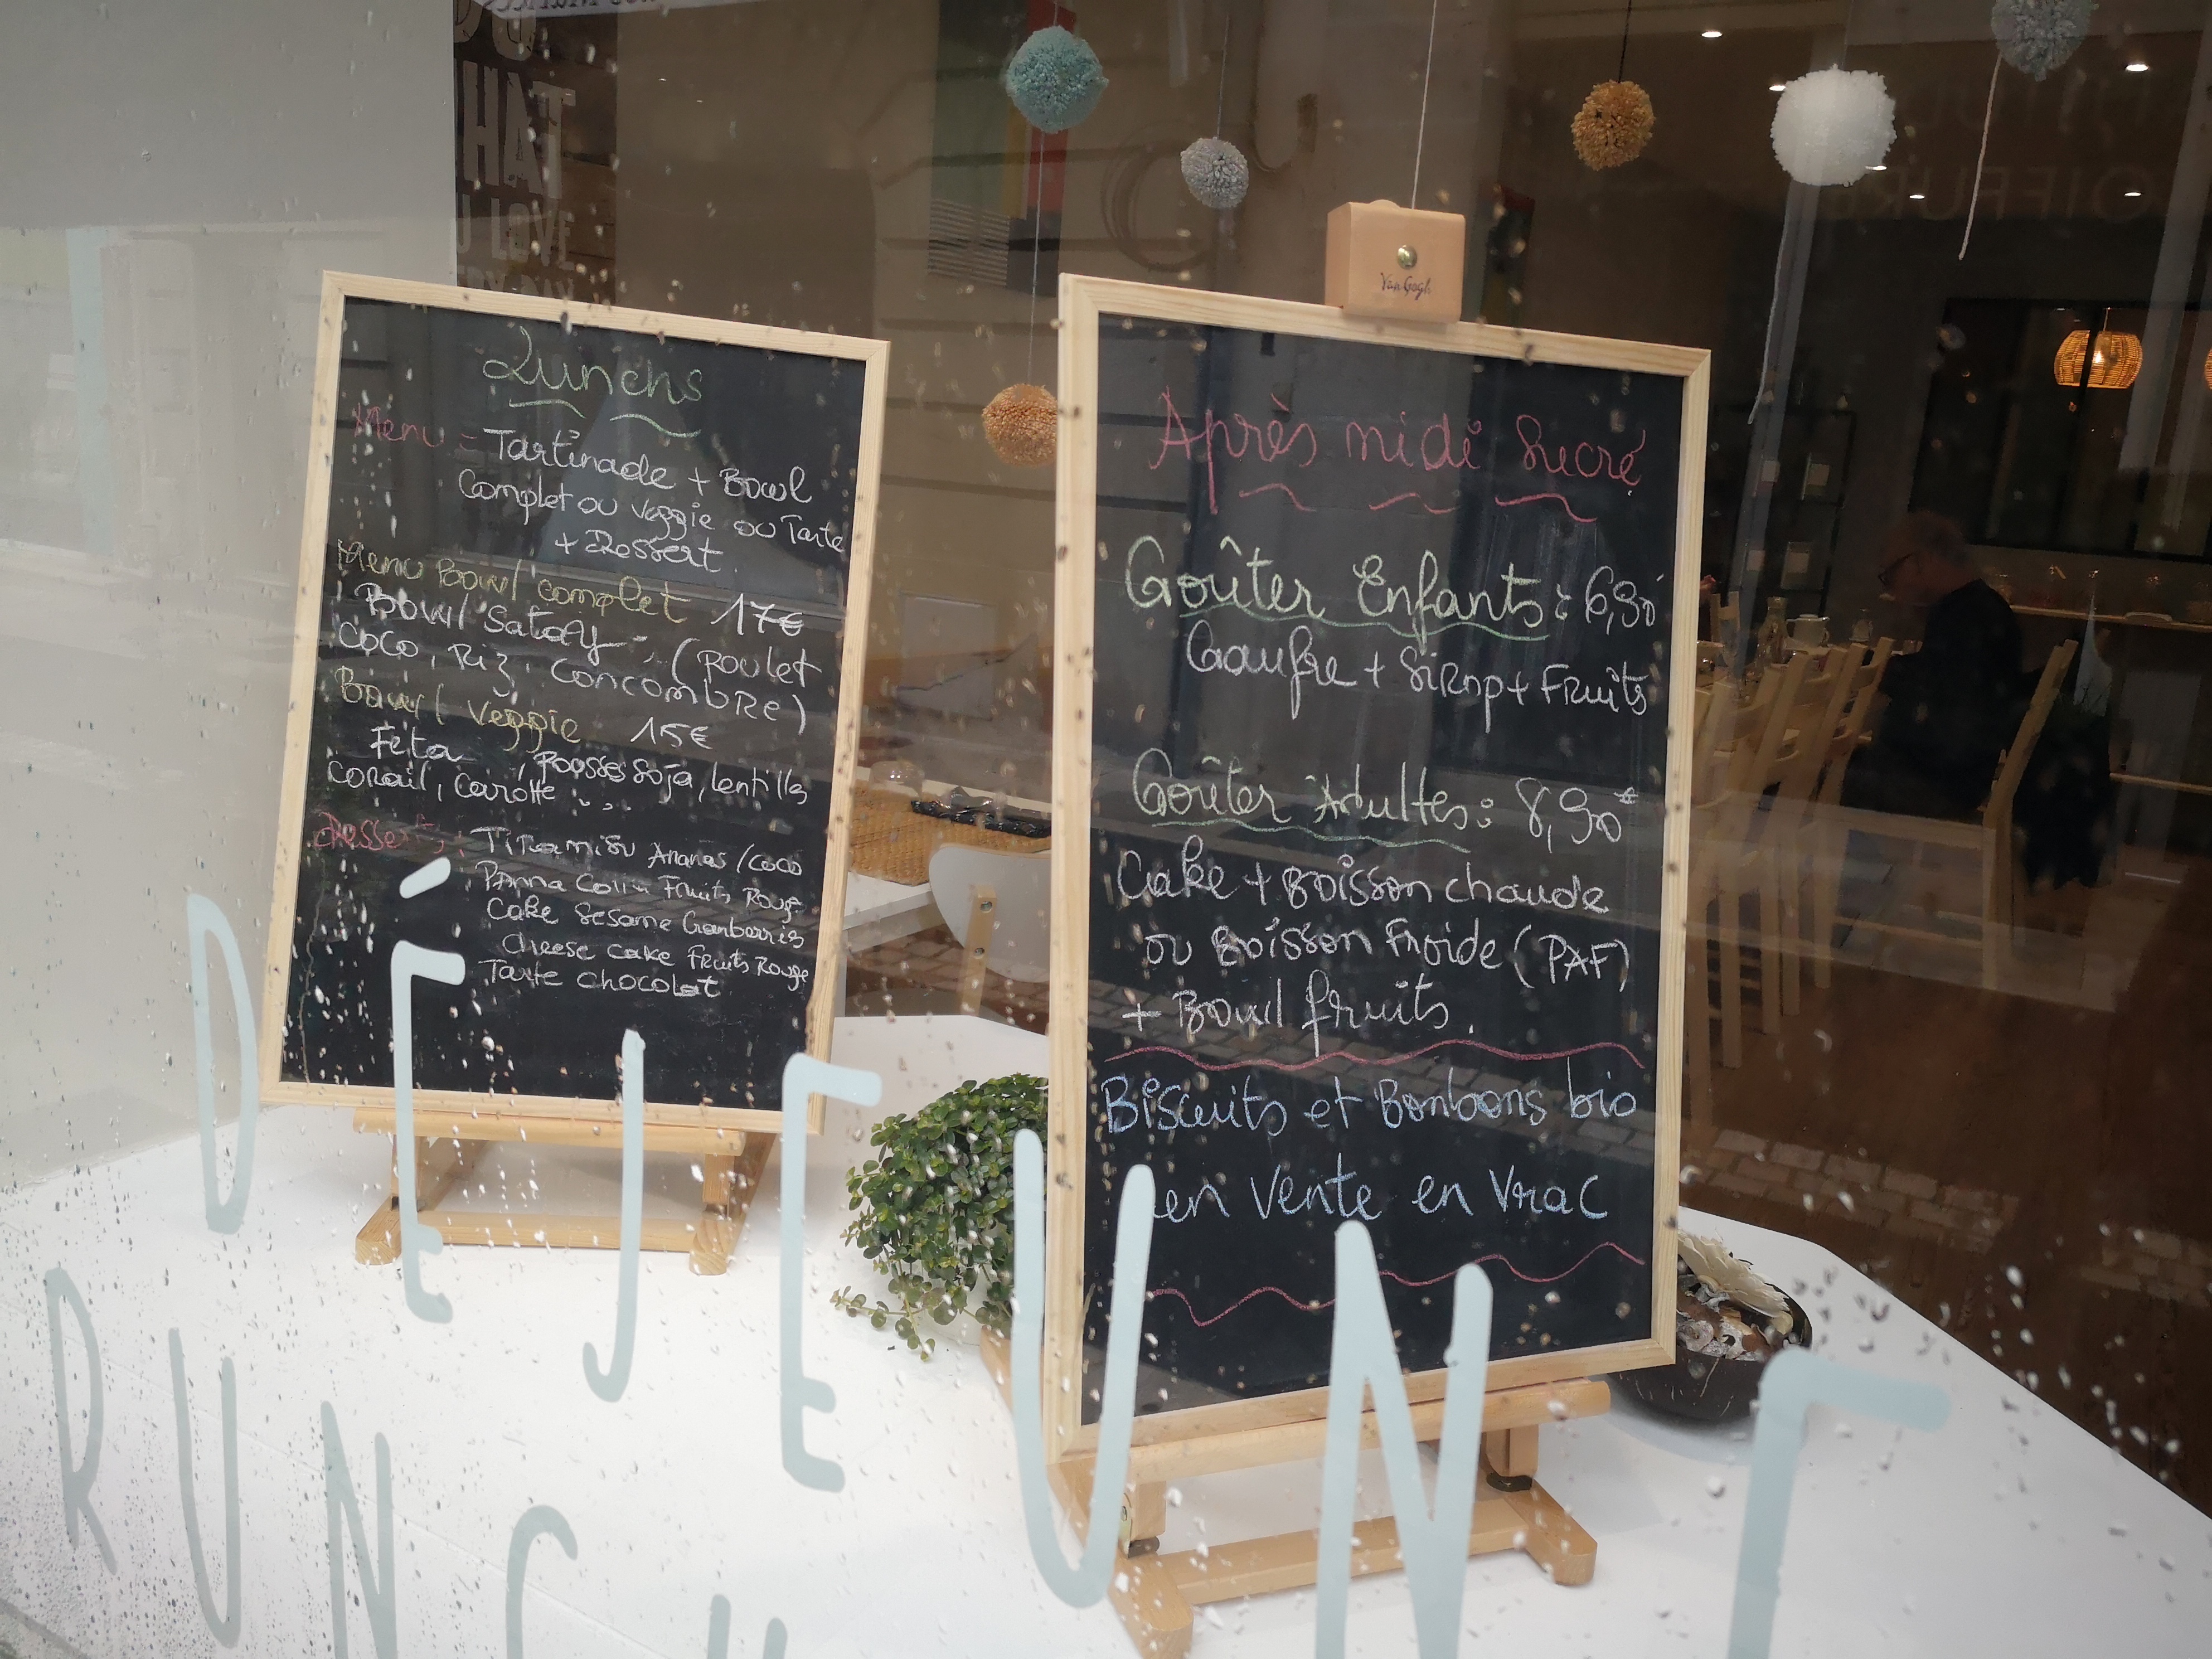 HAT
U LOVE
Lunchs
Menu = Tartinade + Bowl
Complet ou veggie ou Tarte
+ Dessert.
Menu Bowl complet 17€
Bowl Satay - (Poulet
Coco, Riz, Concombre)
Bowl Veggie 15€
Feta, Pousses Soja, lentilles
corail, Carotte ...
Desserts : Tiramisu Ananas/Coco
Panna Fruits Rouge
Cake Sesame Cranberries
Cheese cake Fruits Rouge
Tarte Chocolat
Van Gogh
Après midi Sucré
Goûter Enfants : 6,90
Gaufre + Sirop + Fruits
Goûter Adultes : 8,90€
Cake + Boisson chaude
ou Boisson Froide (PAF)
+ Bowl fruits.
Biscuits et Bonbons bio
en Vente en Vrac
DÉJEUNE
RUNCH